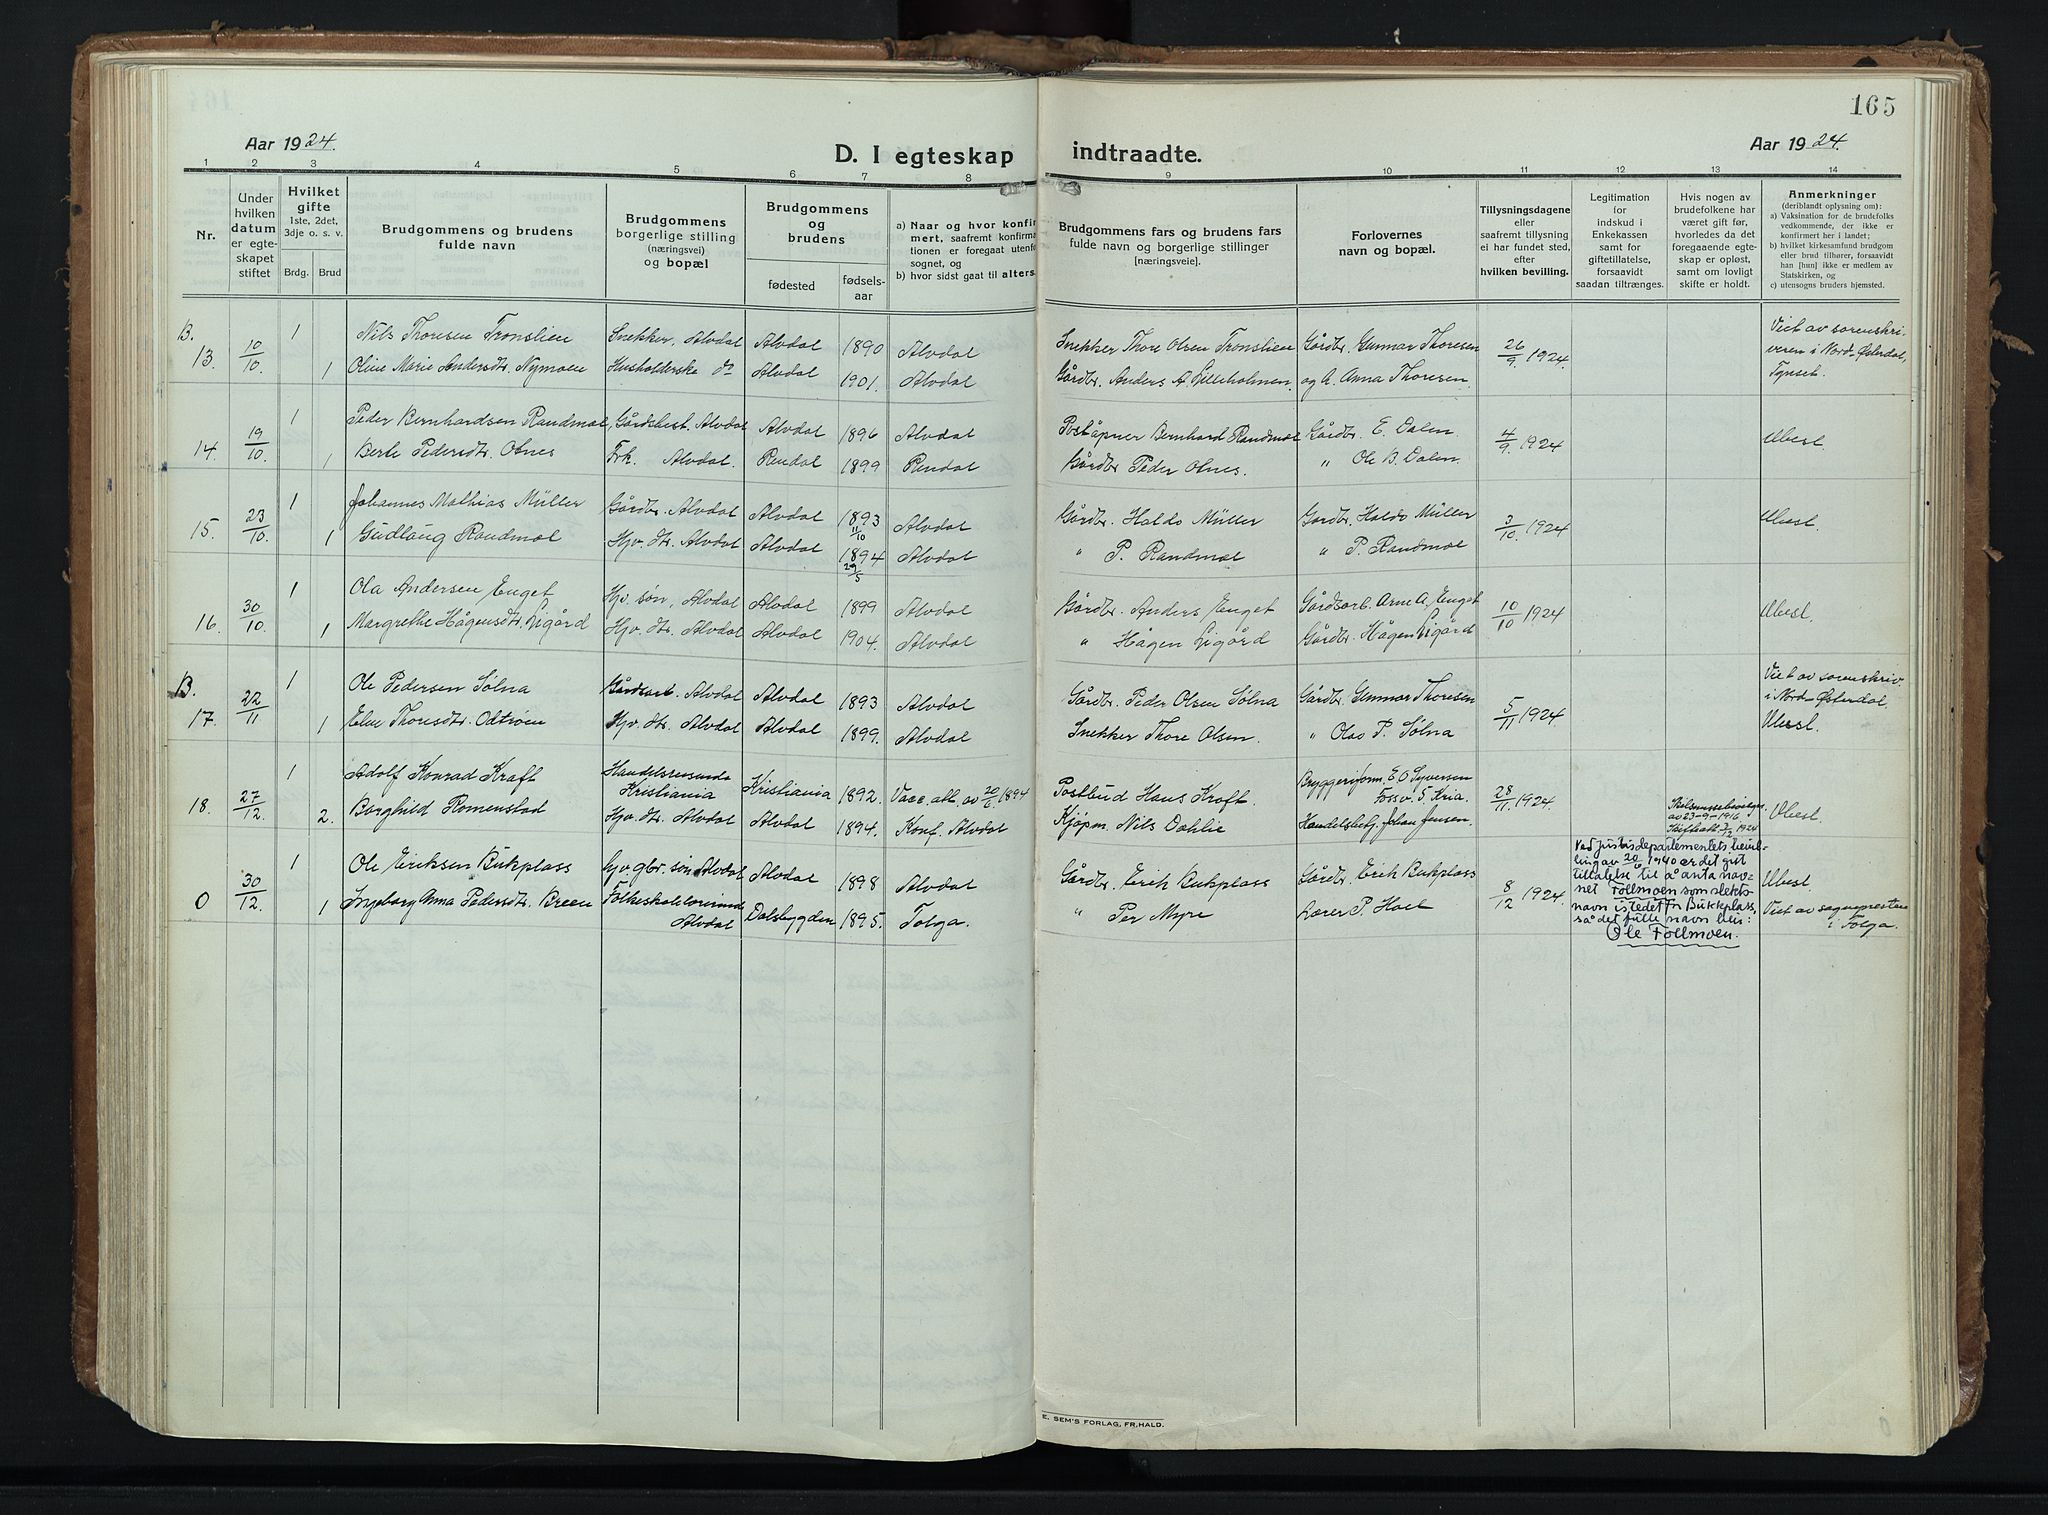 165
Aar 1924.
D. I egteskap indtraadte.
Aar 1924.
1 2 3 4 5 6 7 8 9 10 11 12 13 14
Nr.
Under hvilken datum er egteskapet stiftet
Hvilket gifte 1ste, 2det, 3dje o. s. v.
Brdg. Brud
Brudgommens og brudens fulde navn
Brudgommens borgerlige stilling (næringsvei) og bopæl
Brudgommens og brudens
fødested
fødselsaar
a) Naar og hvor konfir
mert, saafremt konfirma
tionen er foregaat utenfo
sognet, og
b) hvor sidst gaat til alters
Brudgommens fars og brudens fars fulde navn og borgerlige stillinger [næringsveie].
Forlovernes navn og bopæl.
Tillysningsdagene eller saafremt tillysning ei har fundet sted, efter hvilken bevilling.
Legitimation for indskud i Enkekassen samt for giftetillatelse, forsaavidt saadan tiltrænges.
Hvis nogen av brudefolkene har været gift før, hvorledes da det foregaaende egteskap er opløst, samt om lovlig skifte er holdt.
Anmerkninger
(deriblandt oplysning om):
a) Vaksination for de brudefolks vedkommende, der ikke er konfirmert her i landet;
b) hvilket kirkesamfund brudgom eller brud tilhører, forsaavidt han [hun] ikke er medlem av Statskirken, og
c) utensogns bruders hjemsted.
B. 13. 10/10 1 Nils Thoresen Tronslien Snekker, Alvdal Alvdal 1890 Alvdal Snekker Thore Olsen Tronslien Gårdbr. Gunnar Thoresen 26/9 1924 Viet av sorenskri-
1 Oline Marie Andersdtr. Nymoen Husholderske do Alvdal 1901. Alvdal Gårdbr. Anders A. Lilleholmen. og A. Anna Thoresen. veren i Nord-Østerdal, Tynset.
14. 19/10 1 Peder Bernhardsen Randmæl, Gårdsbest. Alvdal Alvdal 1896 Alvdal Poståpner Bernhard Randmæl Gårdbr. E. Dalen. 4/9 1924 Ubesl.
1 Berte Pedersdtr. Olnes Frk. Alvdal. Rendal 1899 Rendal Gårdbr Peder Olnes. " Ole B. Dalen.
15. 23/10 1 Johannes Mathias Müller Gårdbr. Alvdal Alvdal 1893 11/10 Alvdal Gårdbr. Haldo Müller Gårdbr. Haldo Müller 3/10 1924 Ubesl.
1 Gudlaug Randmæl Hjv. dtr. Alvdal Alvdal 1894 29/5 Alvdal " P. Randmæl " P. Randmæl
16. 30/10. 1 Ola Andersen Enget Hjv. søn, Alvdal Alvdal 1899 Alvdal Gårdbr. Anders Enget Gårdsarb. Arne A. Enget 10/10 1924 Ubesl.
1 Margrethe Hågensdtr. Ligård Hjv. dtr. Alvdal Alvdal 1904. Alvdal " Hågen Ligård Gårdbr. Hågen Ligård
B. 17. 22/11 1 Ole Pedersen Sølna Gårdsarb. Alvdal Alvdal 1893 Alvdal Gårdbr. Peder Olsen Sølna Gårdbr. Gunnar Thoresen 5/11 1924 Viet av sorenskriv. i Nord-Østerdal.
1 Eline Thoresdtr. Odtrøen Hjv. dtr. Alvdal Alvdal 1899. Alvdal Snekker Thore Olsen. " Olao P. Sølna Ubesl.
18. 27/12. 1 Adolf Konrad Kraft Handelsreisende Kristiania Kristiania 1892. Vacc. att. av 20/6 1894 Postbud Hans Kraft. Bryggeriform. E O Syversen Fossv. 5. Kria. 28/11. 1924.
2. Borghild Romenstad Hjv. dtr. Alvdal Alvdal 1894. Konf. Alvdal Kjøpm. Nils Dahlie Handelsbetj. Johan Jensen. av 23-9-1916 1924 Ubesl.
0 30/12. 1 Ole Eriksen Bukplass hjv. gbr. søn Alvdal Alvdal 1898 Alvdal Gårdbr. Erik Bukplass Gårdbr. Erik Bukplass 8/12 1924. Ubesl.
1 Ingeborg Anna Pedersdtr. Breen Folkeskolelærerinde Alvdal Dalsbygden 1895. Tolga. " Per Myre Lærer P. Hoel Viet av sognepresten i Tolga.
Ved Justisdepartementets bevil-
ling av 20/6 1940 er det gitt
tillatelse til å anta nav-
net Follmoen som slekts-
navn istedet fr Bukkplass,
så det fulle navn blir:
Ole Follmoen.
E. SEM'S FORLAG, FR.HALD.